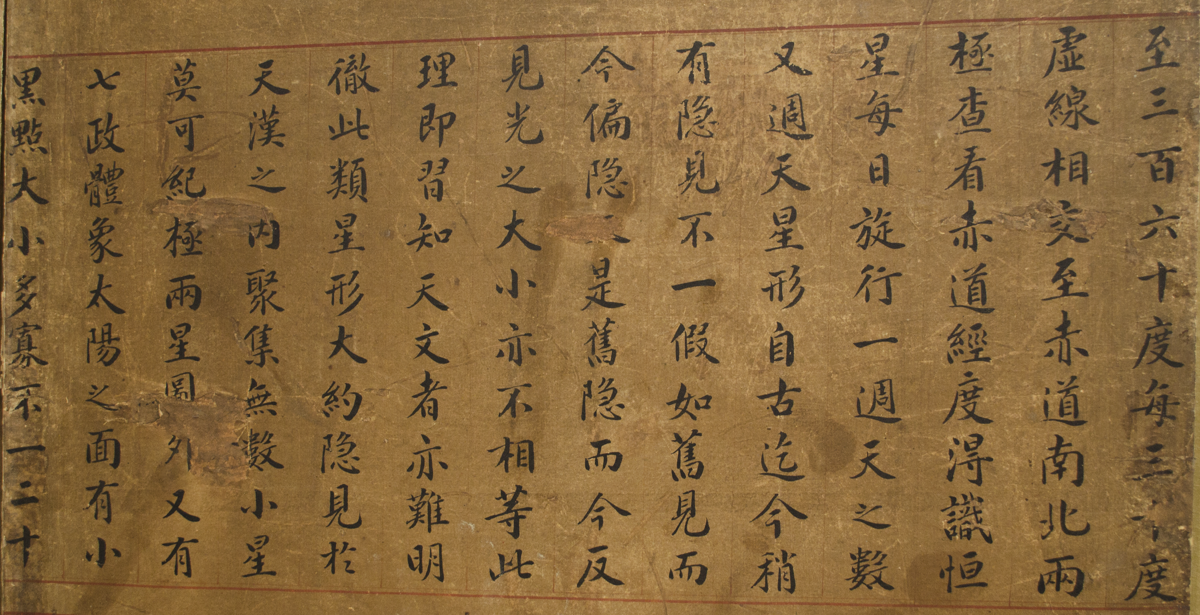 至三百六十度每三十度
虛線相交至赤道南北兩
極查看赤道經度得識恒
星每日旋行一週天之數
又週天星形自古迄今稍
有隐見不一假如舊見而
今偏隐是舊隐而今反
見光之大小亦不相等此
理即習知天文者亦難明
徹此類星形大約隐見於
天漢之内聚集無數小星
莫可紀極兩星圖外又有
七政體象太陽之面有小
黑點大小多寡不一二十